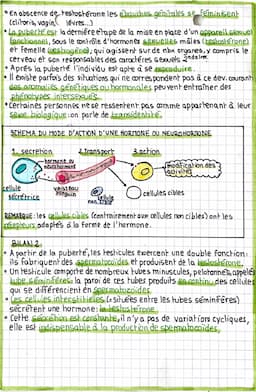 • En absence de testostérone les ébauches génitales se féminisent
(clitoris, vagin, lèvres...)
• La puberté est la dernière étape de la mise en place d'un appareil sexuel
fonctionnel, sous le contrôle d'hormones sexuelles mâles (testostérone)
et femelle (œstrogène), qui agissent sur de nbx organes, y compris le
cerveau et son responsables des caractères sexuels 2ndaire.
• Après la puberté l'individu est apte à se reproduire.
• Il existe parfois des situations qui ne correspondent pas à ce dev. courant
des anomalies génétiques ou hormonales peuvent entraîner des
phénotypes intersexuels.
• Certaines personnes ne se ressentent pas comme appartenant à leur
sexe biologique : on parle de transidentité.
SCHEMA DU MODE D'ACTION D'UNE HORMONE OU NEUROHORMONE
1. secretion 2. transport 3. action
hormone ou
neurohormone
modification des
activités
cellule
sécrétrice
vaisseau
sanguin
cellule
non cible
cellules cibles
REMARQUE : les cellules cibles (contrairement aux cellules non cibles) ont les
récepteurs adaptés à la forme de l'hormone.
BILAN 2
• A partir de la puberté, les testicules exercent une double fonction :
ils fabriquent des spermatozoïdes et produisent de la testostérone.
• Un testicule comporte de nombreux tubes minuscules, pelotonnés, appelés
tube séminifères : la paroi de ces tubes produits en continu des cellules
qui se différencient en spermatozoïdes.
• Les cellules interstitielles (situées entre les tubes séminifères)
sécrètent une hormone : la testostérone.
• Cette sécrétion est constante, il n'y a pas de variations cycliques,
elle est indispensable à la production de spermatozoïdes.